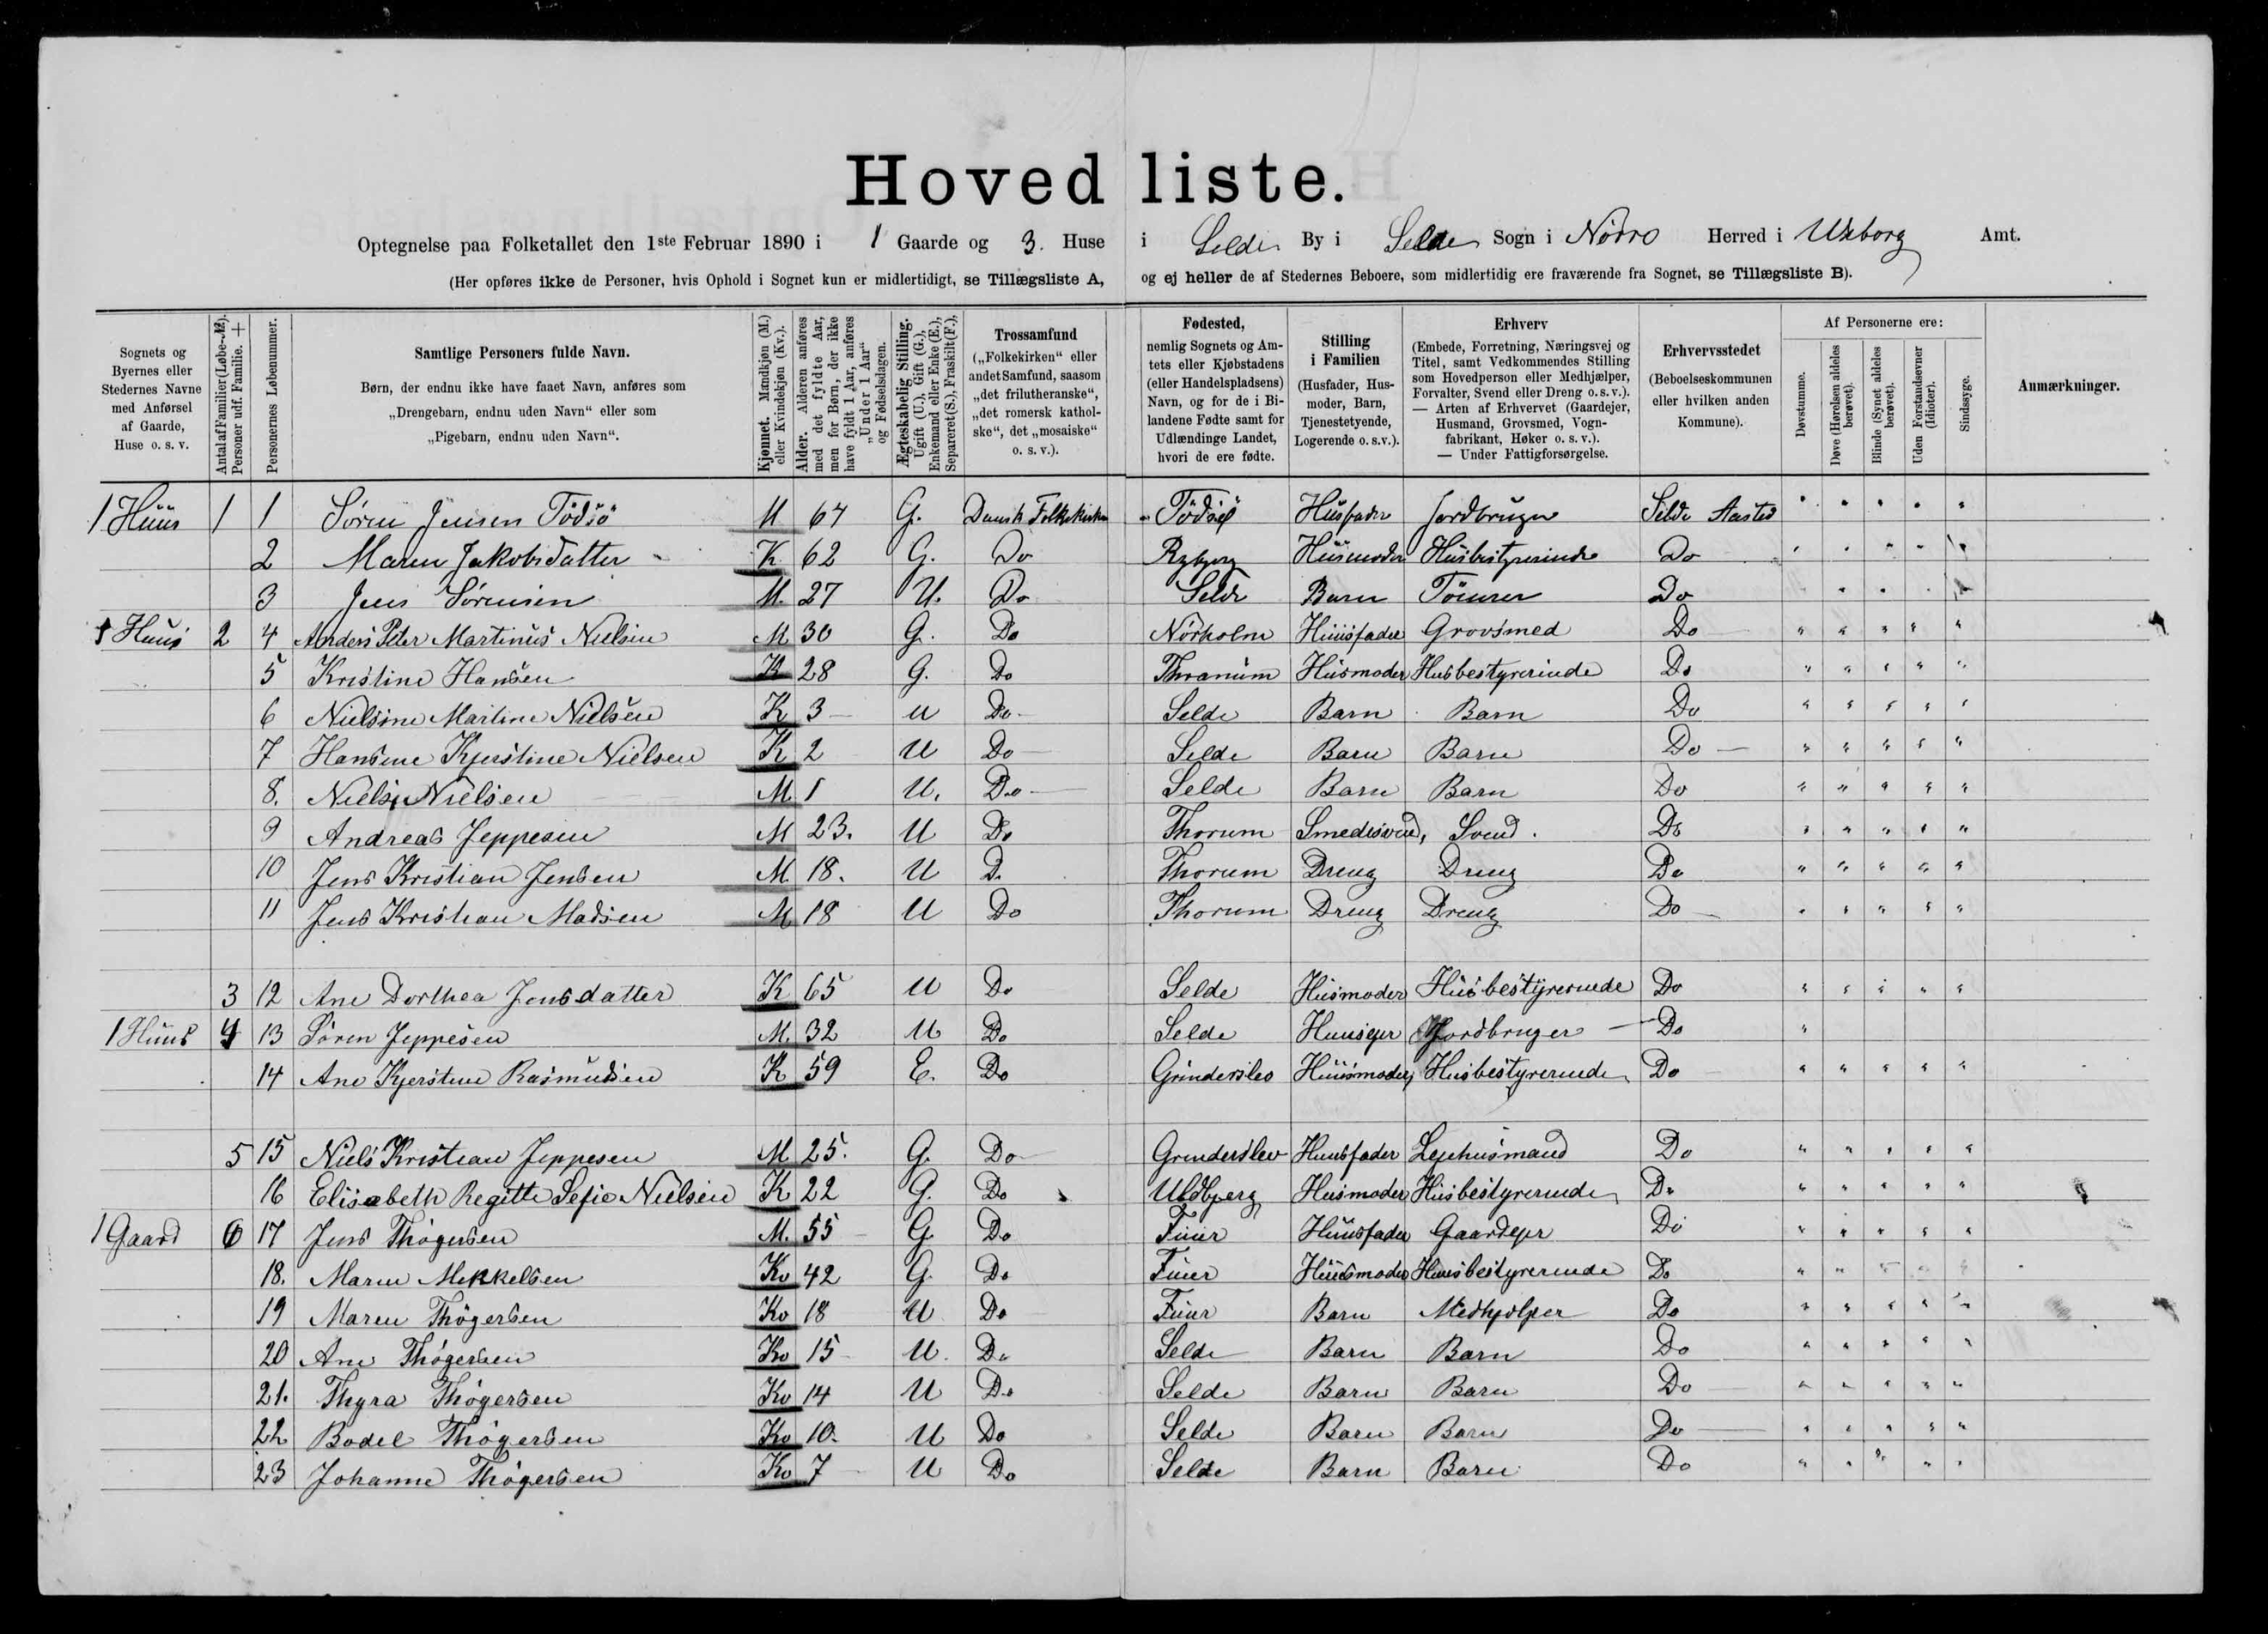 Hovedliste.
Optegnelse paa Folketallet den 1ste Februar 1890 i 1 Gaarde og 3. Huse i Selde By i Selde Sogn i Nörro Herred i Wiborg Amt.
(Her opføres ikke de Personer, hvis Ophold i Sognet kun er midlertidigt, se Tillægsliste A, og ej heller de af Stedernes Beboere, som midlertidig ere fraværende fra Sognet, se Tillægsliste B).
Sognets og Byernes eller Stedernes Navne med Anførsel af Gaarde, Huse o. s. v.
Antal af Familier (Løbe-№). Personer udf. Familie. +
Personernes Løbenummer.
Samtlige Personers fulde Navn.
Børn, der endnu ikke have faaet Navn, anføres som „Drengebarn, endnu uden Navn“ eller som „Pigebarn, endnu uden Navn“.
Kjønnet. Mandkjøn (M.) eller Kvindekjøn (Kv.).
Alder. Alderen anføres med det fyldte Aar, men for Børn, der ikke have fyldt 1 Aar, anføres „Under 1 Aar“ og Fødselsdagen.
Ægteskabelig Stilling. Ugift (U.), Gift (G.), Enkemand eller Enke (E.), Separeret (S.), Fraskilt (F.).
Trossamfund („Folkekirken“ eller andet Samfund, saasom „det frilutheranske“, „det romersk katholske“, det „mosaiske“ o. s. v.).
Fødested, nemlig Sognets og Amtets eller Kjøbstadens (eller Handelspladsens) Navn, og for de i Bilandene Fødte samt for Udlændinge Landet, hvori de ere fødte.
Stilling i Familien (Husfader, Husmoder, Barn, Tjenestetyende, Logerende o. s. v.).
Erhverv (Embede, Forretning, Næringsvej og Titel, samt Vedkommendes Stilling som Hovedperson eller Medhjælper, Forvalter, Svend eller Dreng o. s. v.). — Arten af Erhvervet (Gaardejer, Husmand, Grovsmed, Vognfabrikant, Høker o. s. v.). — Under Fattigforsørgelse.
Erhvervsstedet (Beboelseskommunen eller hvilken anden Kommune).
Af Personerne ere:
Døvstumme.
Døve (Hørelsen aldeles berøvet).
Blinde (Synet aldeles berøvet).
Uden Forstandsevner (Idioter).
Sindssyge.
Anmærkninger.
1 Huus 1 1 Sören Jensen Tödsö M 67 G. Dansk Folkekirken Tödsø Husfader Jordbruger Selde Aasted
2 Maren Jakobsdatter K 62 G. Do Rybjerg Husmoder Husbestyrerinde Do
3 Jens Sörensen M. 27 U. Do Selde Barn Tömrer Do
1 Huus 2 4 Anders Peter Martinus Nielsen M 30 G. Do Nörholm Huusfader Grovsmed Do
5 Kristine Hansen K 28 G. Do Thranum Husmoder Husbestyrerinde Do
6 Nielsine Martine Nielsen K 3 U Do Selde Barn Barn Do
7 Hansine Kjerstine Nielsen K 2 U Do Selde Barn Barn Do
8. Niels Nielsen M. 1 U. Do Selde Barn Barn Do
9 Andreas Jeppesen M 23. U Do Thorum Smedesvend, Svend. Do
10 Jens Kristian Jensen M. 18. U D. Thorum Dreng Dreng Do
11 Jens Kristian Madsen M 18 U Do Thorum Dreng Dreng Do
3 12 Ane Dorthea Jensdatter K 65 U Do Selde Husmoder Husbestyrerinde Do
1 Huus 4 13 Sören Jeppesen M. 32 U Do Selde Huusejer Jordbruger Do
14 Ane Kjerstine Rasmussen K 59 E. Do Grinderslev Huusmoder, Husbestyrerinde Do
5 15 Niels Kristian Jeppesen M 25. G. Do Grinderslev Huusfader Lejehusmand Do
16 Elisabeth Regitte Sefie Nielsen K 22 G. Do Uldbjerg Husmoder Husbestyrerinde Do
1 Gaard 6 17 Jens Thögersen M. 55 G Do Fuur Huusfader Gaardejer Do
18. Maren Mekkelsen Kv 42 G. Do Fuur Huusmoder Huusbestyrerinde Do
19 Maren Thögersen Kv 18 U. Do Fuur Barn Medhjælper Do
20 Ane Thögersen Kv 15 U. Do Selde Barn Barn Do
21. Thyra Thögersen Kv 14 U Do Selde Barn Barn Do
22 Bodel Thögersen Kv 10. U Do Selde Barn Barn Do
23 Johanne Thögersen Kv 7 U Do Selde Barn Barn Do